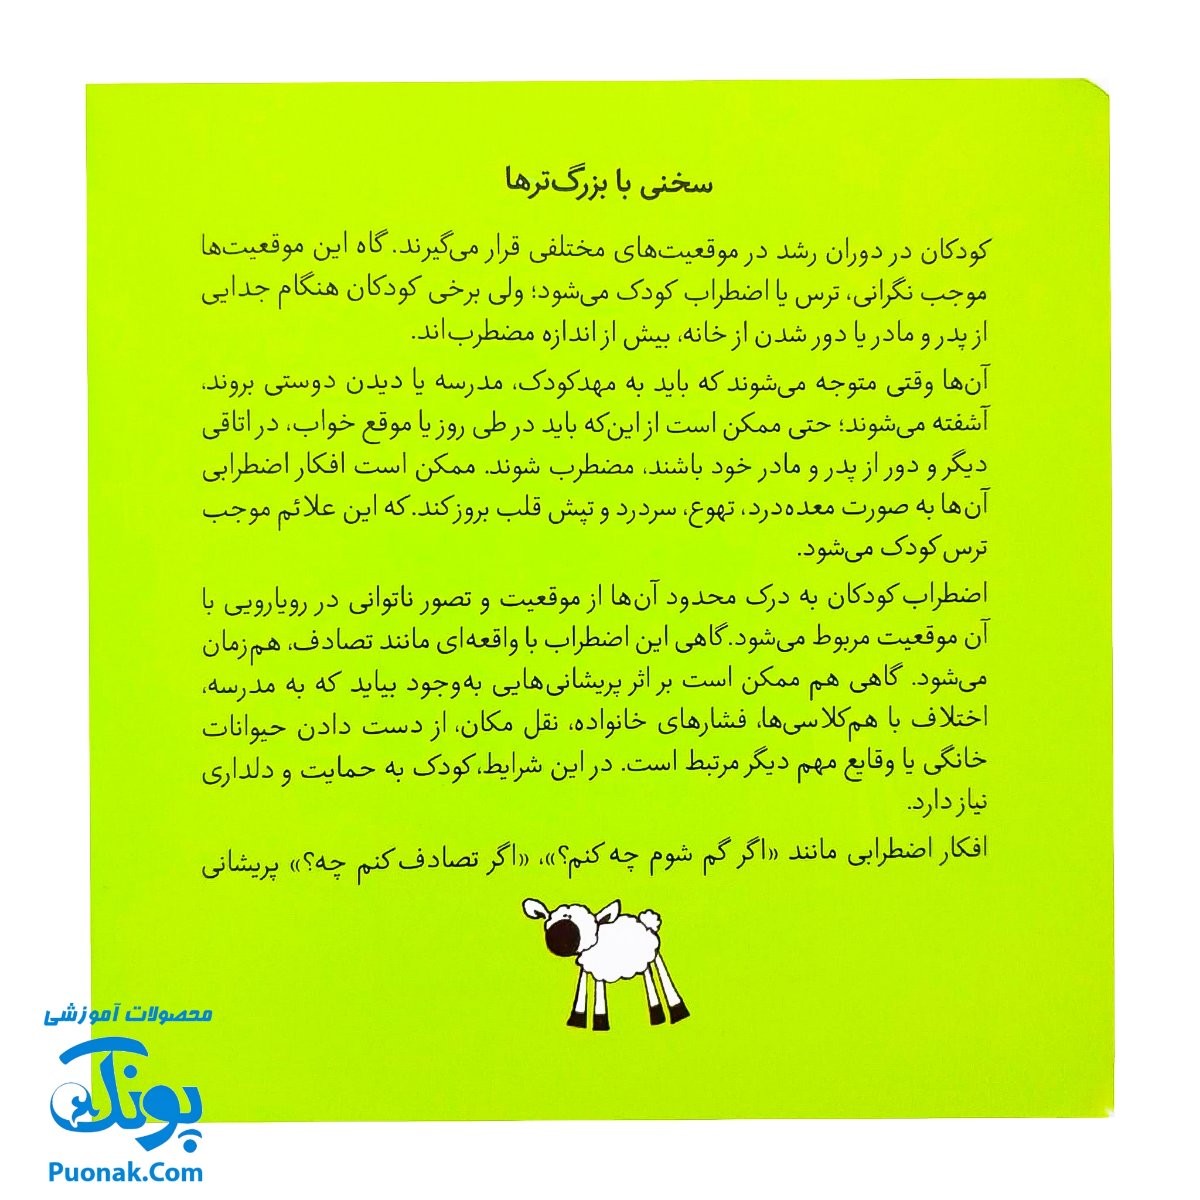 سخنی با بزرگ‌ترها
کودکان در دوران رشد در موقعیت‌های مختلفی قرار می‌گیرند. گاه این موقعیت‌ها
موجب نگرانی، ترس یا اضطراب کودک می‌شود؛ ولی برخی کودکان هنگام جدایی
از پدر و مادر یا دور شدن از خانه، بیش از اندازه مضطرب‌اند.
آن‌ها وقتی متوجه می‌شوند که باید به مهدکودک، مدرسه یا دیدن دوستی بروند،
آشفته می‌شوند؛ حتی ممکن است از این‌که باید در طی روز یا موقع خواب، در اتاقی
دیگر و دور از پدر و مادر خود باشند، مضطرب شوند. ممکن است افکار اضطرابی
آن‌ها به صورت معده‌درد، تهوع، سردرد و تپش قلب بروز کند. که این علائم موجب
ترس کودک می‌شود.
اضطراب کودکان به درک محدود آن‌ها از موقعیت و تصور ناتوانی در رویارویی با
آن موقعیت مربوط می‌شود. گاهی این اضطراب با واقعه‌ای مانند تصادف، هم‌زمان
می‌شود. گاهی هم ممکن است بر اثر پریشانی‌هایی به‌وجود بیاید که به مدرسه،
اختلاف با هم‌کلاسی‌ها، فشارهای خانواده، نقل مکان، از دست دادن حیوانات
خانگی یا وقایع مهم دیگر مرتبط است. در این شرایط، کودک به حمایت و دلداری
نیاز دارد.
افکار اضطرابی مانند «اگر گم شوم چه کنم؟»، «اگر تصادف کنم چه؟» پریشانی
محصولات آموزشی
پونک
Puonak.Com